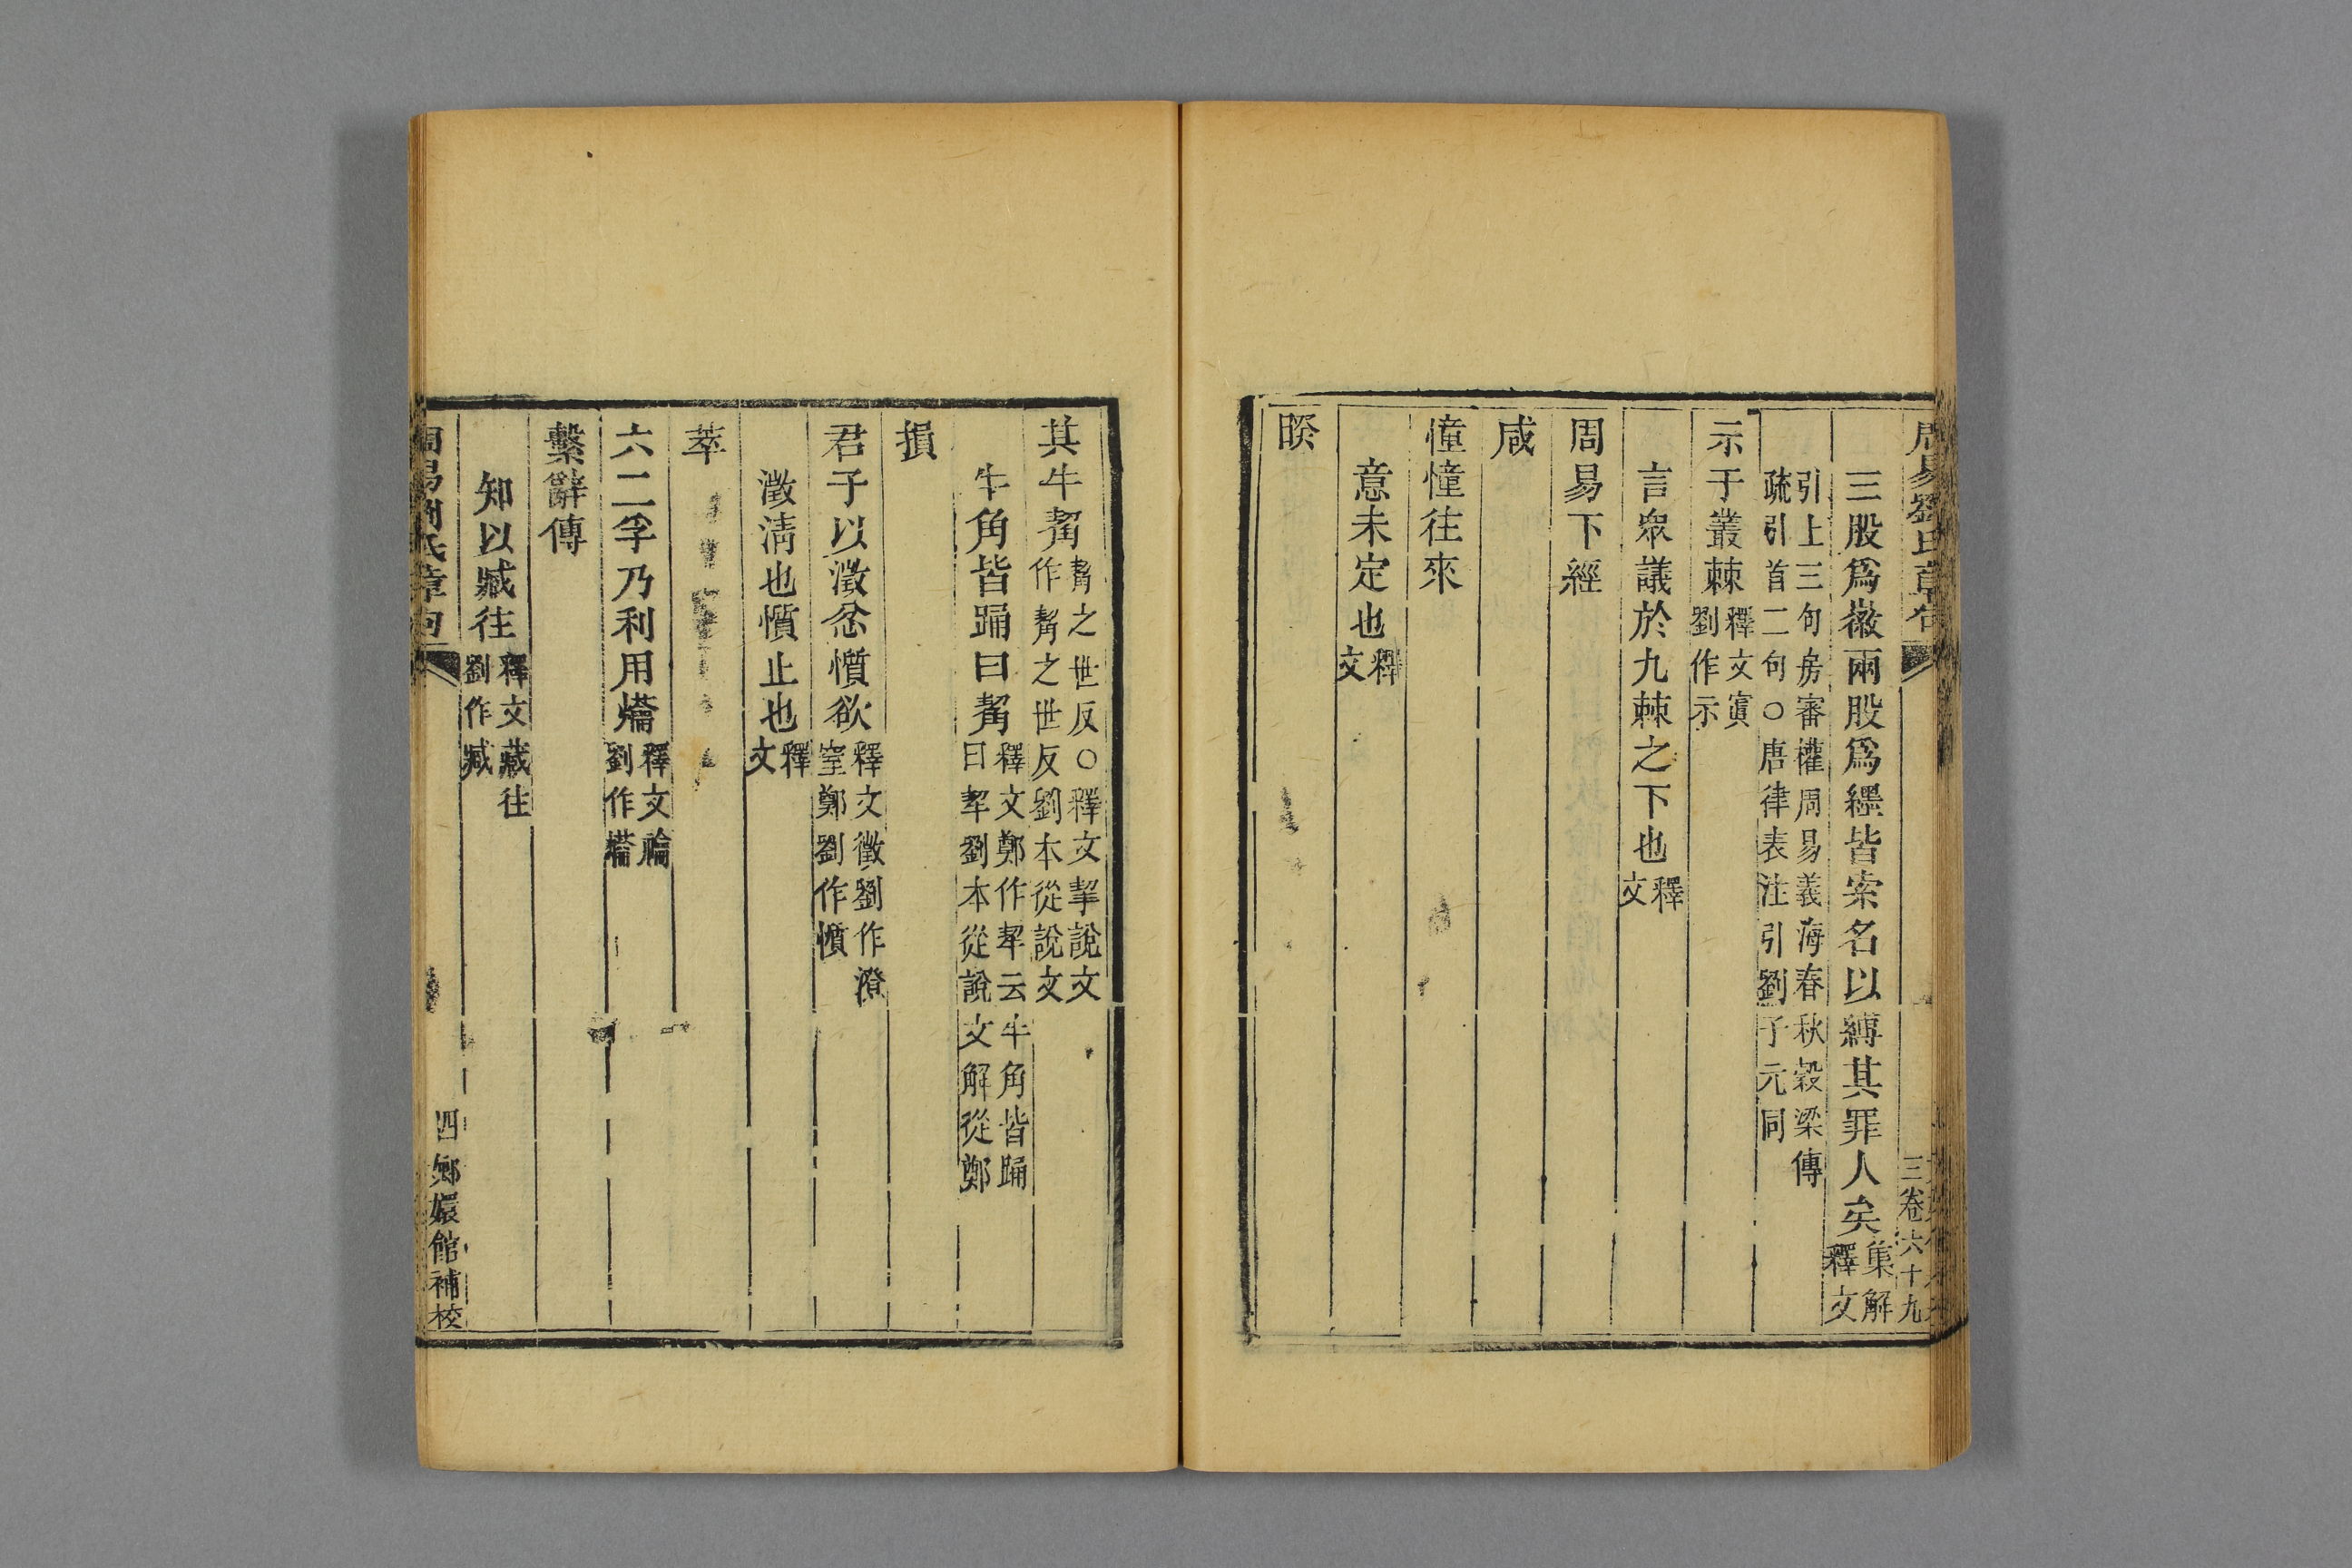 周易劉氏章句
三卷六十九
三股爲徽兩股爲纆皆索名以縛其罪人矣集解釋文
引上三句房審權周易義海春秋穀梁傳
疏引首二句○唐律表注引劉子元同
示于叢棘釋文寘劉作示
言衆議於九棘之下也釋文
周易下經
咸
憧憧往來
意未定也釋文
睽
其牛觢觢之世反○釋文掣說文作觢之世反劉本從說文
牛角皆踊曰觢釋文鄭作挈云牛角皆踊曰挈劉本從說文解從鄭
損
君子以澂忿懫欲釋文徵劉作澄窒鄭劉作懫
澂淸也懫止也釋文
萃
六二孚乃利用爚釋文禴劉作爚
繫辭傳
知以臧往釋文藏往劉作臧
周易劉氏章句
四 嫏嬛館補校